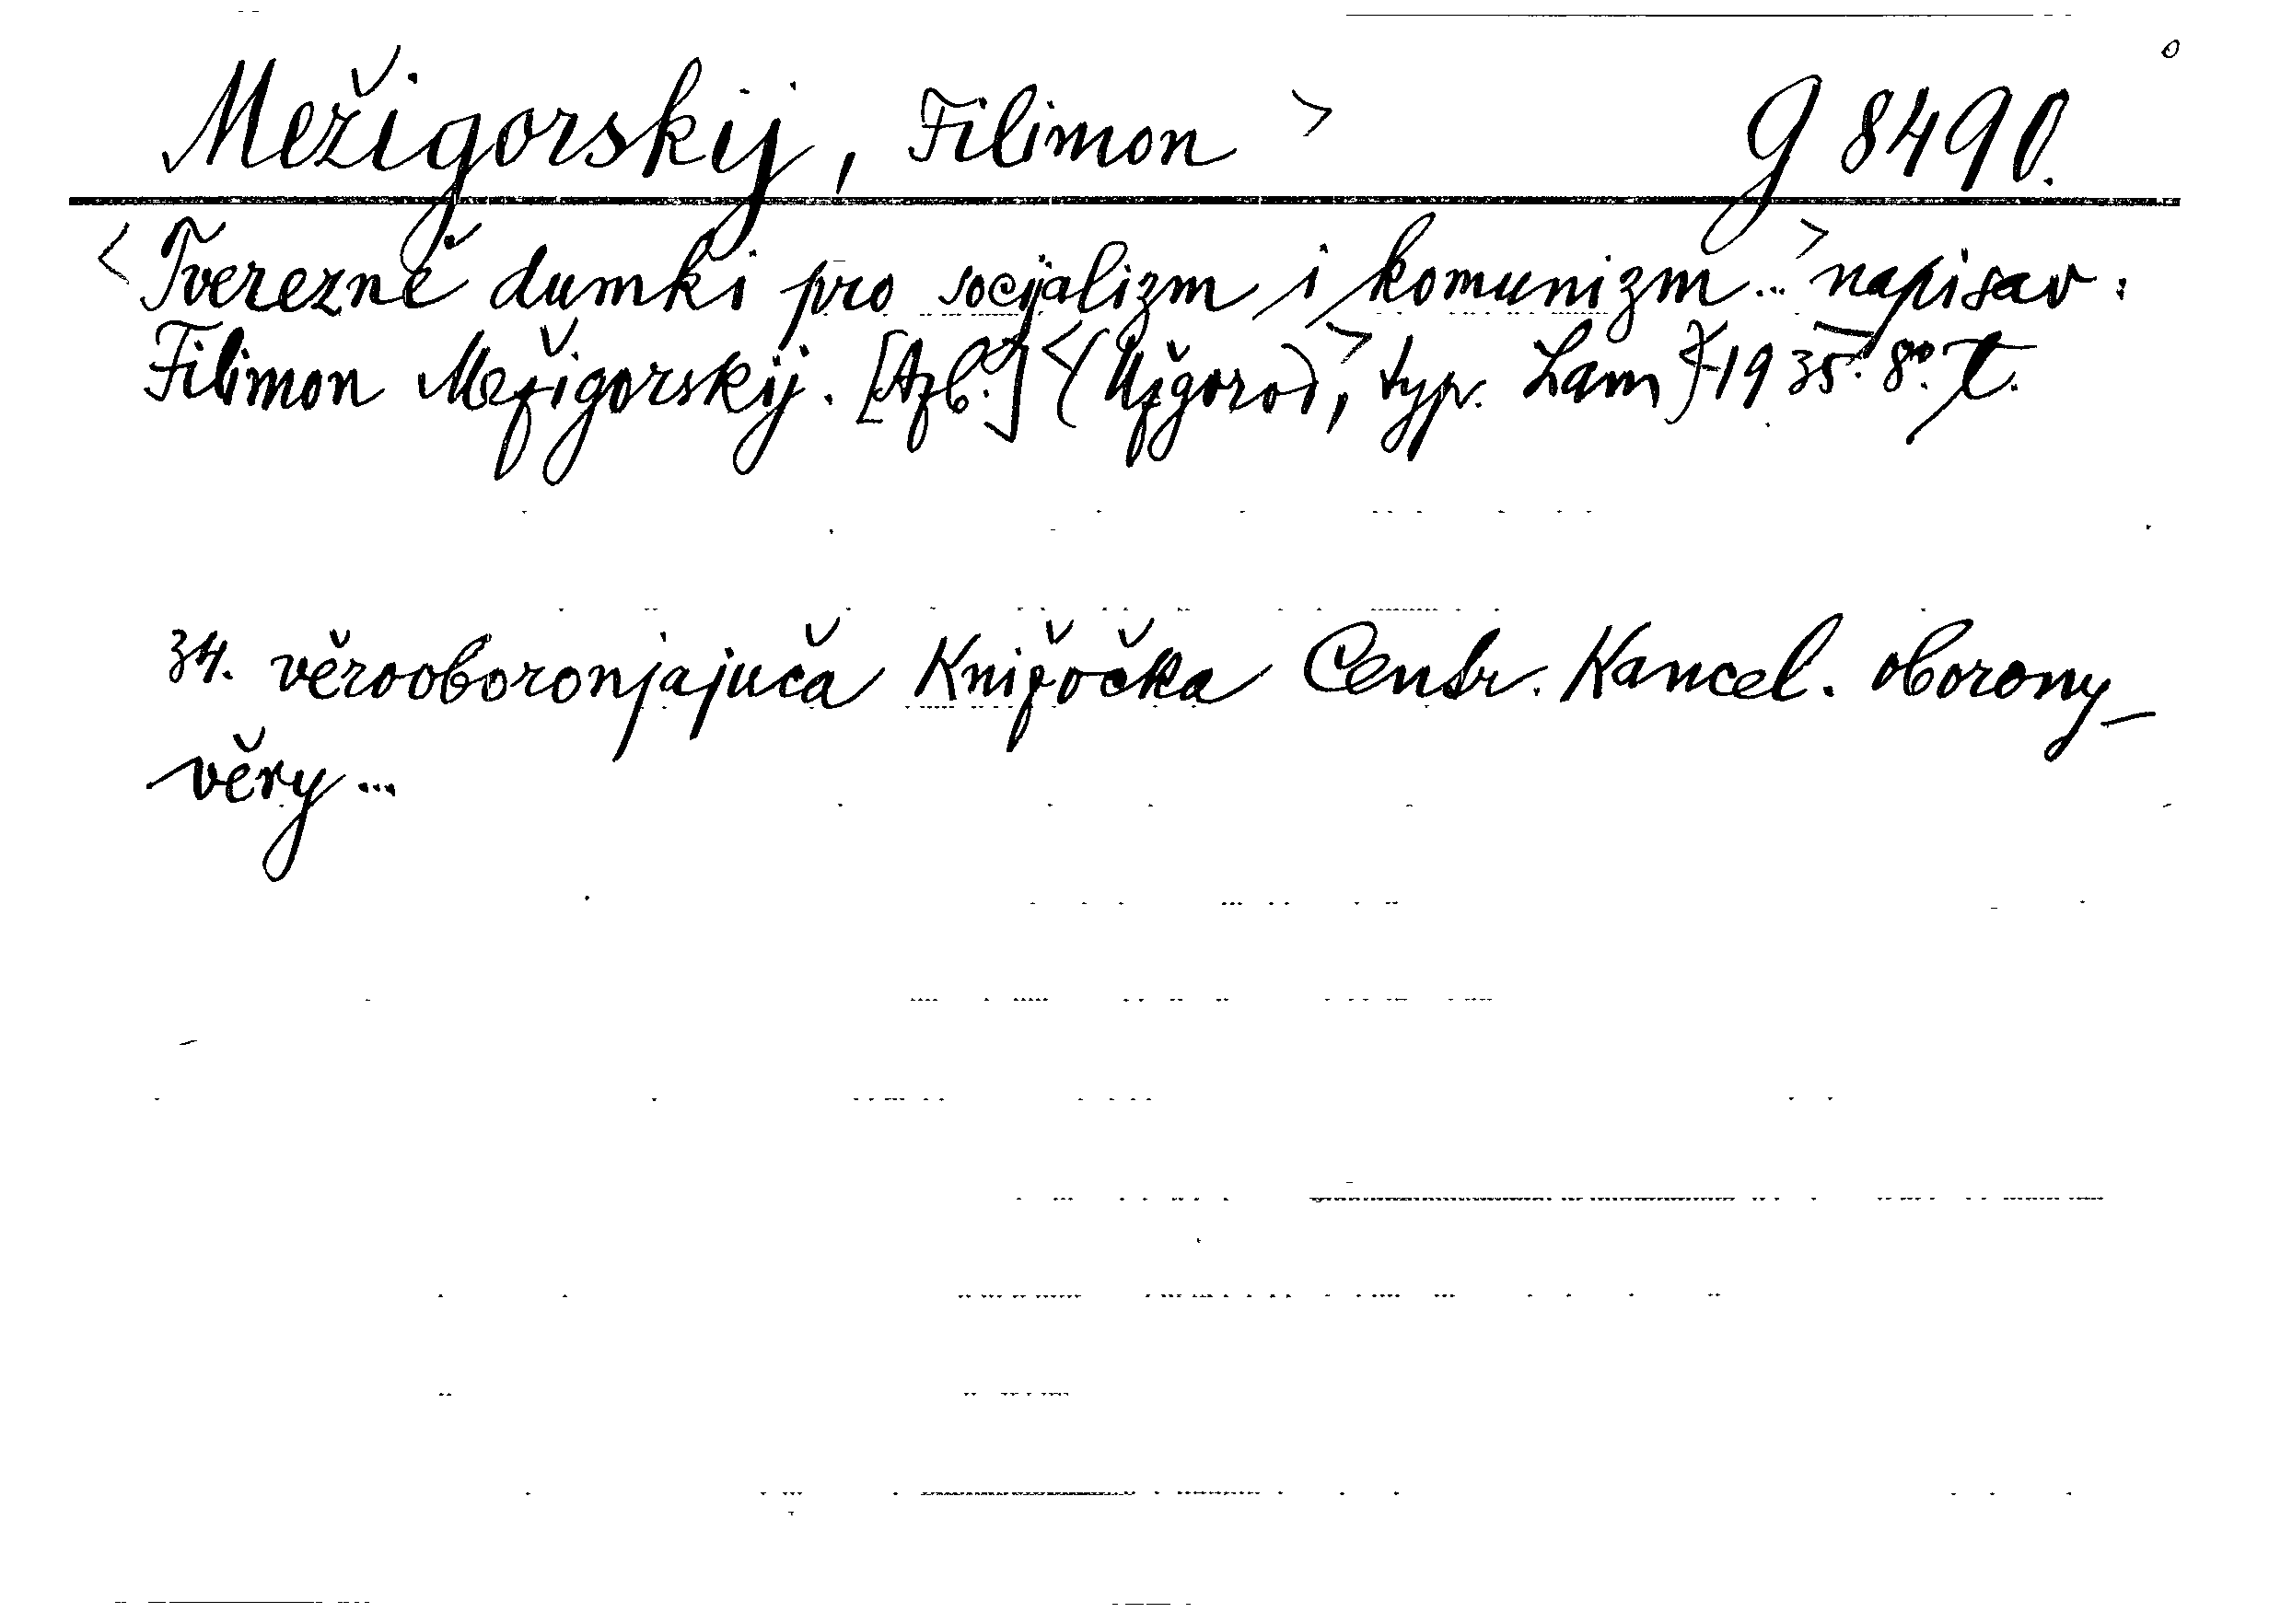 Mežigorskij, Filimon > g 8490.
<Tverezně dumki pro socijalizm i komunizm...> napisav:
Filimon Mežigorskij. [Azb.] <(Užgorod,> typ. Lam) 1935. 8°. T.
34. věrooboronjajuča Knižočka Centr. Kancel. oborony
věry...